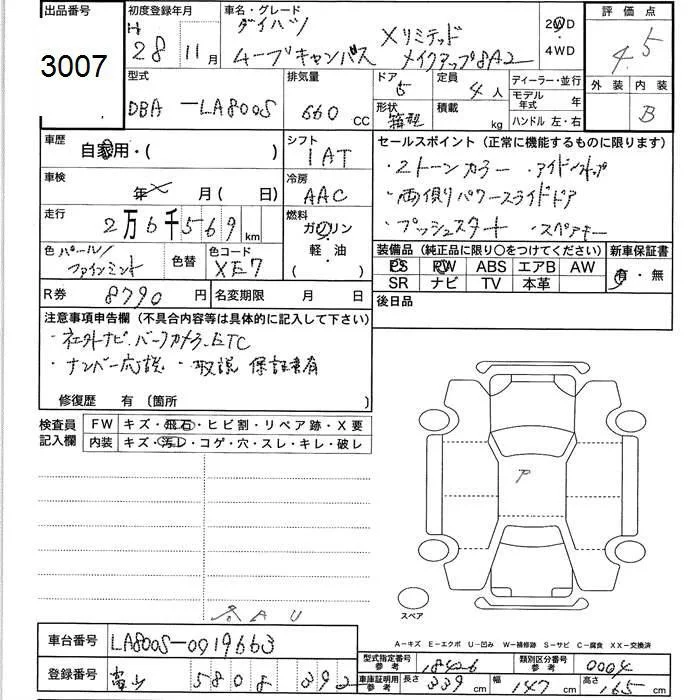 出品番号
3007
初度登録年月
H
28 11月
車名・グレード
ダイハツ
ムーブキャンバス
Xリミテッド
メイクアップSA2
2WD
4WD
評価点
4.5
外装 内装
B
型式
DBA-LA800S
排気量
660 cc
ドア
5
形状
箱型
定員
4人
積載
kg
ディーラー・並行
モデル年式 年
ハンドル 左・右
車歴
自家用・( )
シフト
IAT
車検
年 月( 日)
冷房
AAC
走行
2万6千569km
燃料
ガソリン
軽・油
( )
色
パール/
ファインミント
色替
色コード
XE7
R券
8790円
名変期限 月 日
セールスポイント(正常に機能するものに限ります)
・2トーンカラー ・アイドルストップ
・両側パワースライドドア
・プッシュスタート ・スペアキー
装備品(純正品に限り〇をつけてください)
PS PW ABS エアB AW
SR ナビ TV 本革
新車保証書
有・無
後日品
注意事項申告欄(不具合内容等は具体的に記入して下さい)
・社外ナビ.バックカメラ.ETC
・ナンバー応談 ・取説 保証書有
修復歴 有〔箇所 〕
検査員
記入欄
FW キズ・飛石・ヒビ割・リペア跡・X要
内装 キズ・汚レ・コゲ・穴・スレ・キレ・破レ
ア
スペア
A U
A-キズ E-エクボ U-凹み W-補修跡 S-サビ C-腐食 XX-交換済
車台番号
LA800S-0019663
登録番号
富山 580 8 392
型式指定番号
参考
18426
類別区分番号
参考
0004
車庫証明用
参考
長さ 339cm
幅 147cm
高さ 165cm